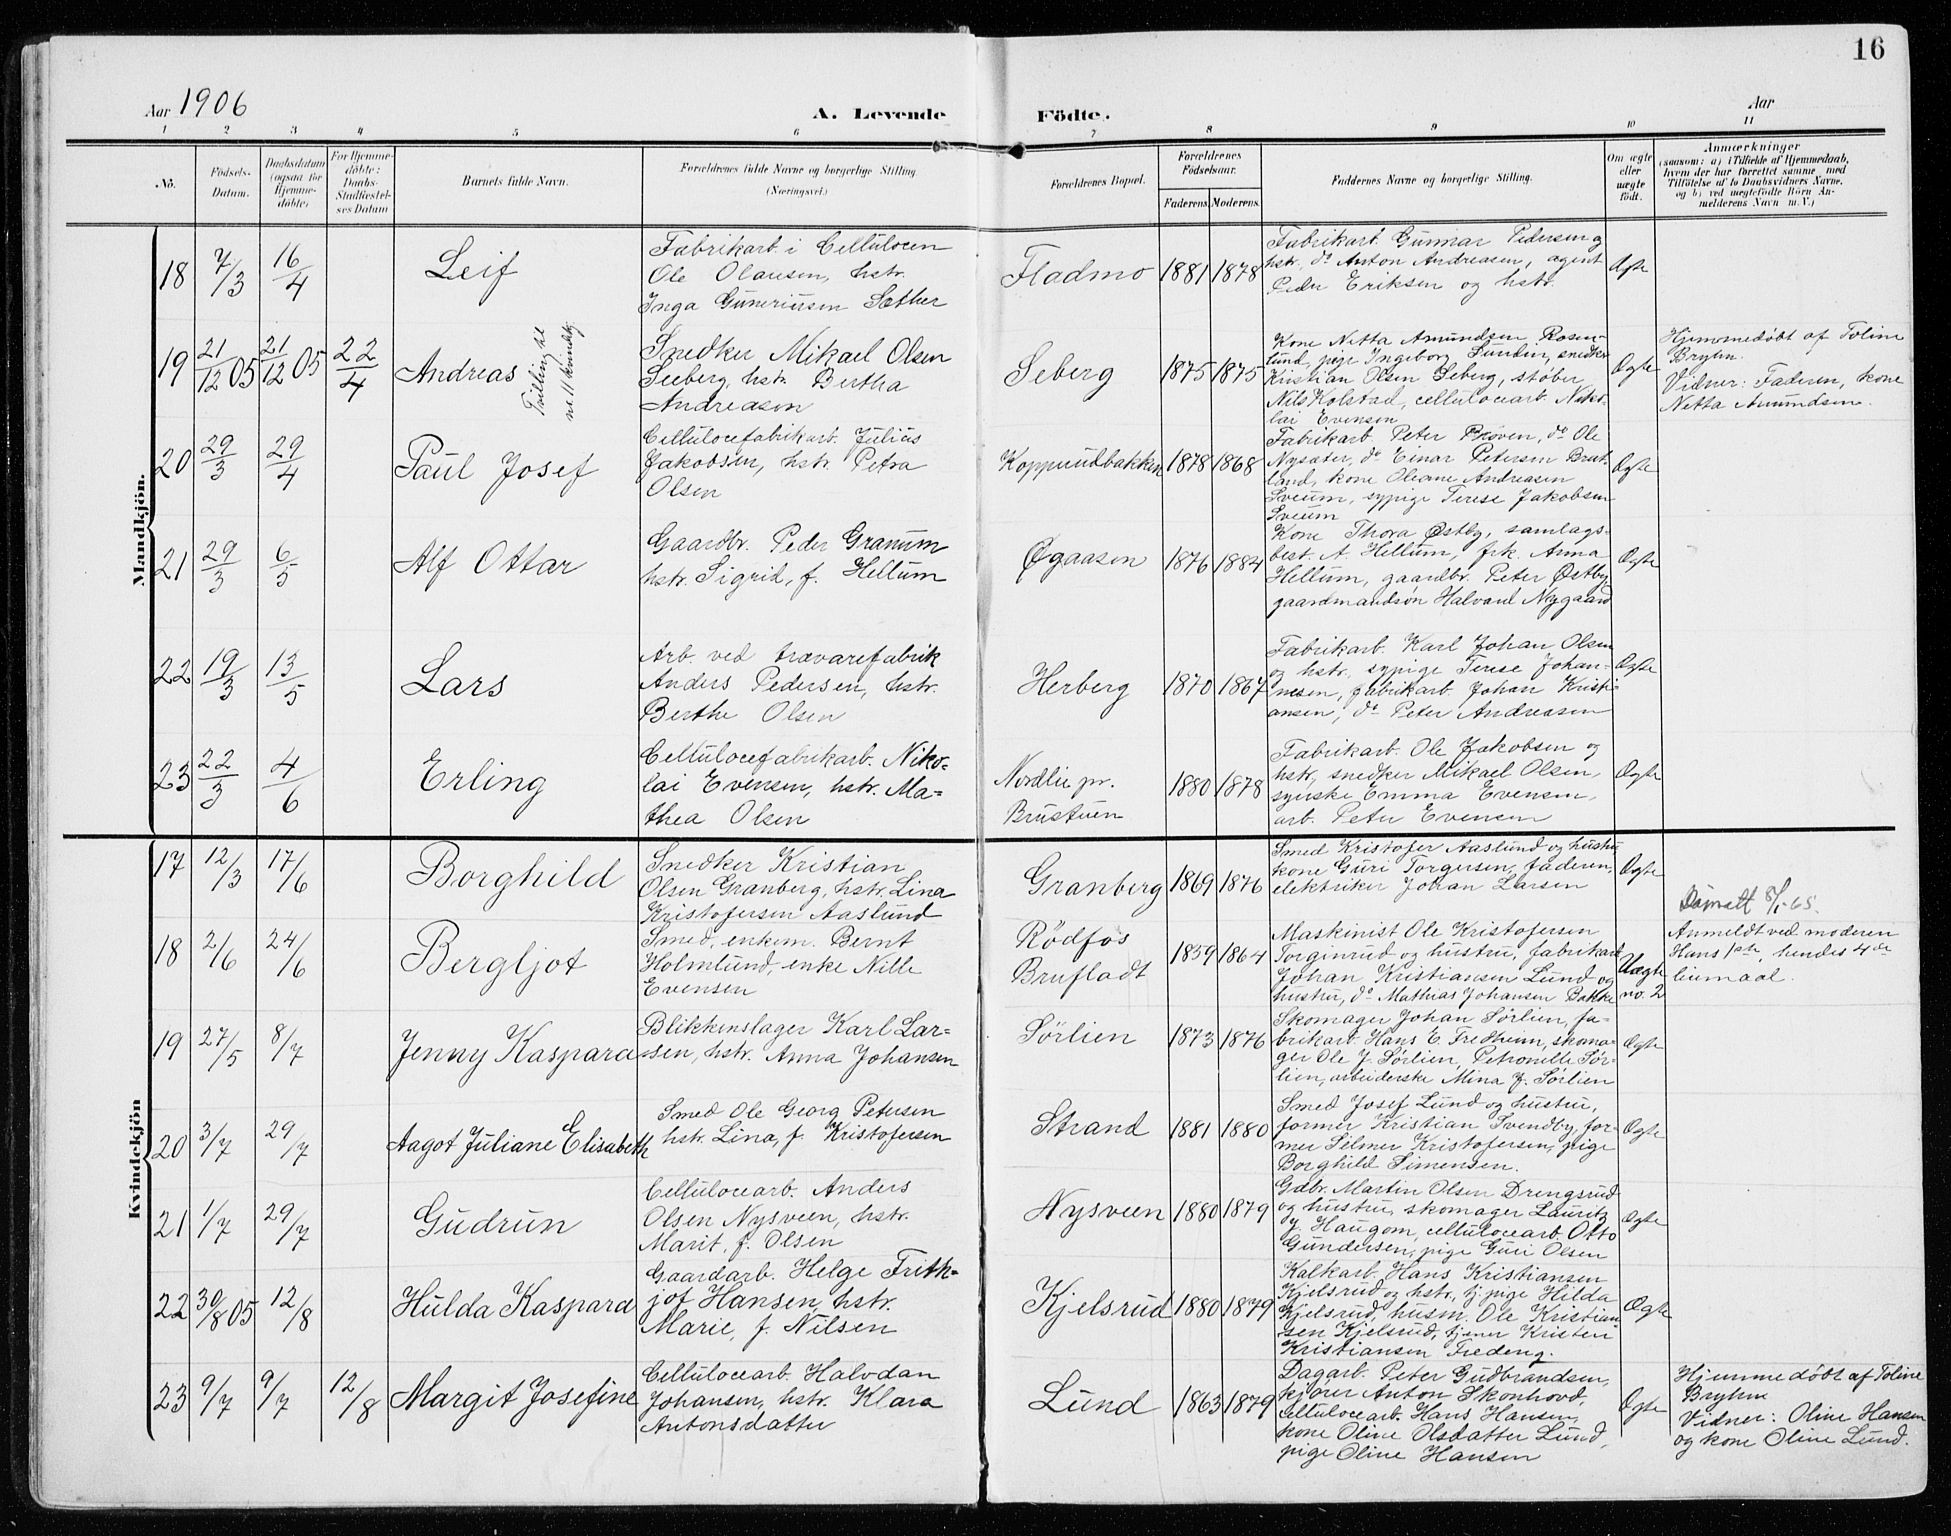 16
Aar 1906
A. Levende Födte.
Aar
1 2 3 4 5 6 7 8 9 10 11
No.
Födsels-
Datum.
Daabsdatum
(ogsaa for
Hjemme-
døbte)
For Hjemme-
døbte:
Daabs-
Stadfæstel-
ses Datum
Barnets fulde Navn.
Forældrenes fulde Navne og borgerlige Stilling
(Næringsvei.)
Forældrenes Bopæl.
Forældrenes
Födselsaar.
Faderens. Moderens.
Faddernes Navne og borgerlige Stilling.
Om ægte
eller
uægte
födt.
Anmærkninger
(saasom: a) i Tilfælde af Hjemmedaab,
hvem der har forrettet samme, med
Tilföielse af to Daabsvidners Navne,
og b) ved uægtefödte Börn An-
melderens Navn m. V.)
Mandkjön.
18 7/3 16/4
Leif
Fabrikarb. i Cellulocen
Ole Olausen, hstr.
Inga Guneriusen Sæther
Fladmo 1881 1878
Fabrikarb. Gunnar Pedersen og
hstr. do Anton Andreasen, agent
Peder Eriksen og hstr.
Ægte
19 21/12 05 21/12 05 22/4
Andreas
Tvilling til
no 11 kvindekj
Snedker Mikael Olsen
Seeberg, hstr. Bertha
Andreasen
Seberg 1875 1875
Kone Netta Amundsen Rosen-
lund, pige Ingeborg Lundin, snedker
Kristian Olsen Seberg, støber
Nils Kolstad, cellulocearb. Niko-
lai Evensen
Ægte
Hjemmedøbt af Toline
Bryhn.
Vidner: Faderen, kone
Netta Amundsen.
20 29/3 29/4
Paul Josef
Cellulocefabrikarb. Julius
Jakobsen, hstr. Petra
Olsen
Koppurudbakken 1878 1868
Fabrikarb. Peter Prøven, do Ole
Nysæter, do Einar Petersen Brat-
land, kone Oleane Andreasen
Sveum, sypige Terese Jakobsen
Sveum
Ægte
21 29/3 6/5
Alf Ottar
Gaardbr. Peder Granum
hstr. Sigrid, f. Hellum
Øgaasen 1876 1884
Kone Thora Østby, samlags-
best. A. Hellum, frk. Anna
Hellum, gaardbr. Peter Østby,
gaardmandsøn Halvard Nygaard
Ægte
22 19/3 13/5
Lars
Arb. ved trævarefabrik
Anders Pedersen, hstr.
Berthe Olsen
Herberg 1870 1867
Fabrikarb. Karl Johan Olsen
og hstr. sypige Terese Johan-
nesen, fabrikarb. Johan Kristi-
ansen, do Peter Andreasen
Ægte
23 22/3 4/6
Erling
Cellulocefabrikarb. Niko-
lai Evensen, hstr. Ma-
thea Olsen
Nordlie pr.
Brustuen
1880 1878
Fabrikarb. Ole Jakobsen og
hstr, snedker Mikael Olsen,
syerske Emma Evensen,
arb. Peter Evensen
Ægte
Kvindekjön
17 12/3 17/6
Borghild
Snedker Kristian
Olsen Granberg, hstr. Lina
Kristofersen Aaslund
Granberg 1869 1876
Smed Kristofer Aaslund og hustru
kone Guri Torgersen, faderen,
elektriker Johan Larsen
Ægte
18 2/6 24/6
Bergljot
Smed, enkem. Bernt
Holmlund, enke Nille
Evensen
Rødfos
Brufladt
1859 1864
Maskinist Ole Kristofersen
Torgenrud og hustru, fabrikarb
Johan Kristiansen Lund og
hustru, do Mathias Johansen Bakke
Uægte
no. 2
Dåpsatt 8/1-65.
Anmeldt ved moderen
Hans 1ste, hendes 4de
leiemaal.
19 27/5 8/7
Jenny Kaspara
Blikkenslager Karl Lar-
ssen, hstr. Anna Johansen
Sørlien 1873 1876
Skomager Johan Sørlien, fa-
brikarb. Hans E. Fredheim, skoma-
ger Ole J. Sørlien, Petronelle Sør-
lien, arbeiderske Mina J. Sørlien
Ægte
20 3/7 29/7
Aagot Juliane Elisabeth
Smed Ole Georg Petersen
hstr. Lina, f. Kristofersen
Strand 1881 1880
Smed Josef Lund og hustru,
former Kristian Svendby, for-
mer Selmer Kristofersen, pige
Borghild Simensen.
Ægte
21 1/7 29/7
Gudrun
Cellulocearb. Anders
Olsen Nysveen, hstr.
Marit, f. Olsen
Nysveen 1880 1879
Gdbr. Martin Olsen Drengsrud
og hustru, skomager Lauritz
J. Haugom, cellulocearb. Otto
Gundersen, pige Guri Olsen
Ægte
22 30/8 05 12/8
Hulda Kaspara
Gaardarb. Helge Frith-
jof Hansen, hstr.
Marie, f. Nilsen
Kjelsrud 1880 1879
Kalkarb. Hans Kristiansen
Kjelsrud og hstr, tj. pige Hilda
Kjelsrud, husm. Ole Kristian
sen Kjelsrud, tjener Kristen
Kristiansen Fredeng.
Ægte
23 9/7 9/7 12/8
Margit Josefine
Cellulocearb. Halvdan
Johansen, hstr. Klara
Antonsdatter
Lund 1863 1879
Dagarb. Peter Gudbrandsen,
kjører Anton Skonhovd,
cellulocearb. Hans Hansen,
kone Oline Olsdatter Lund,
pige Oline Hansen
Ægte
Hjemmedøbt af Toline
Bryhn
Vidner: Oline Hansen
og kone Oline Lund.